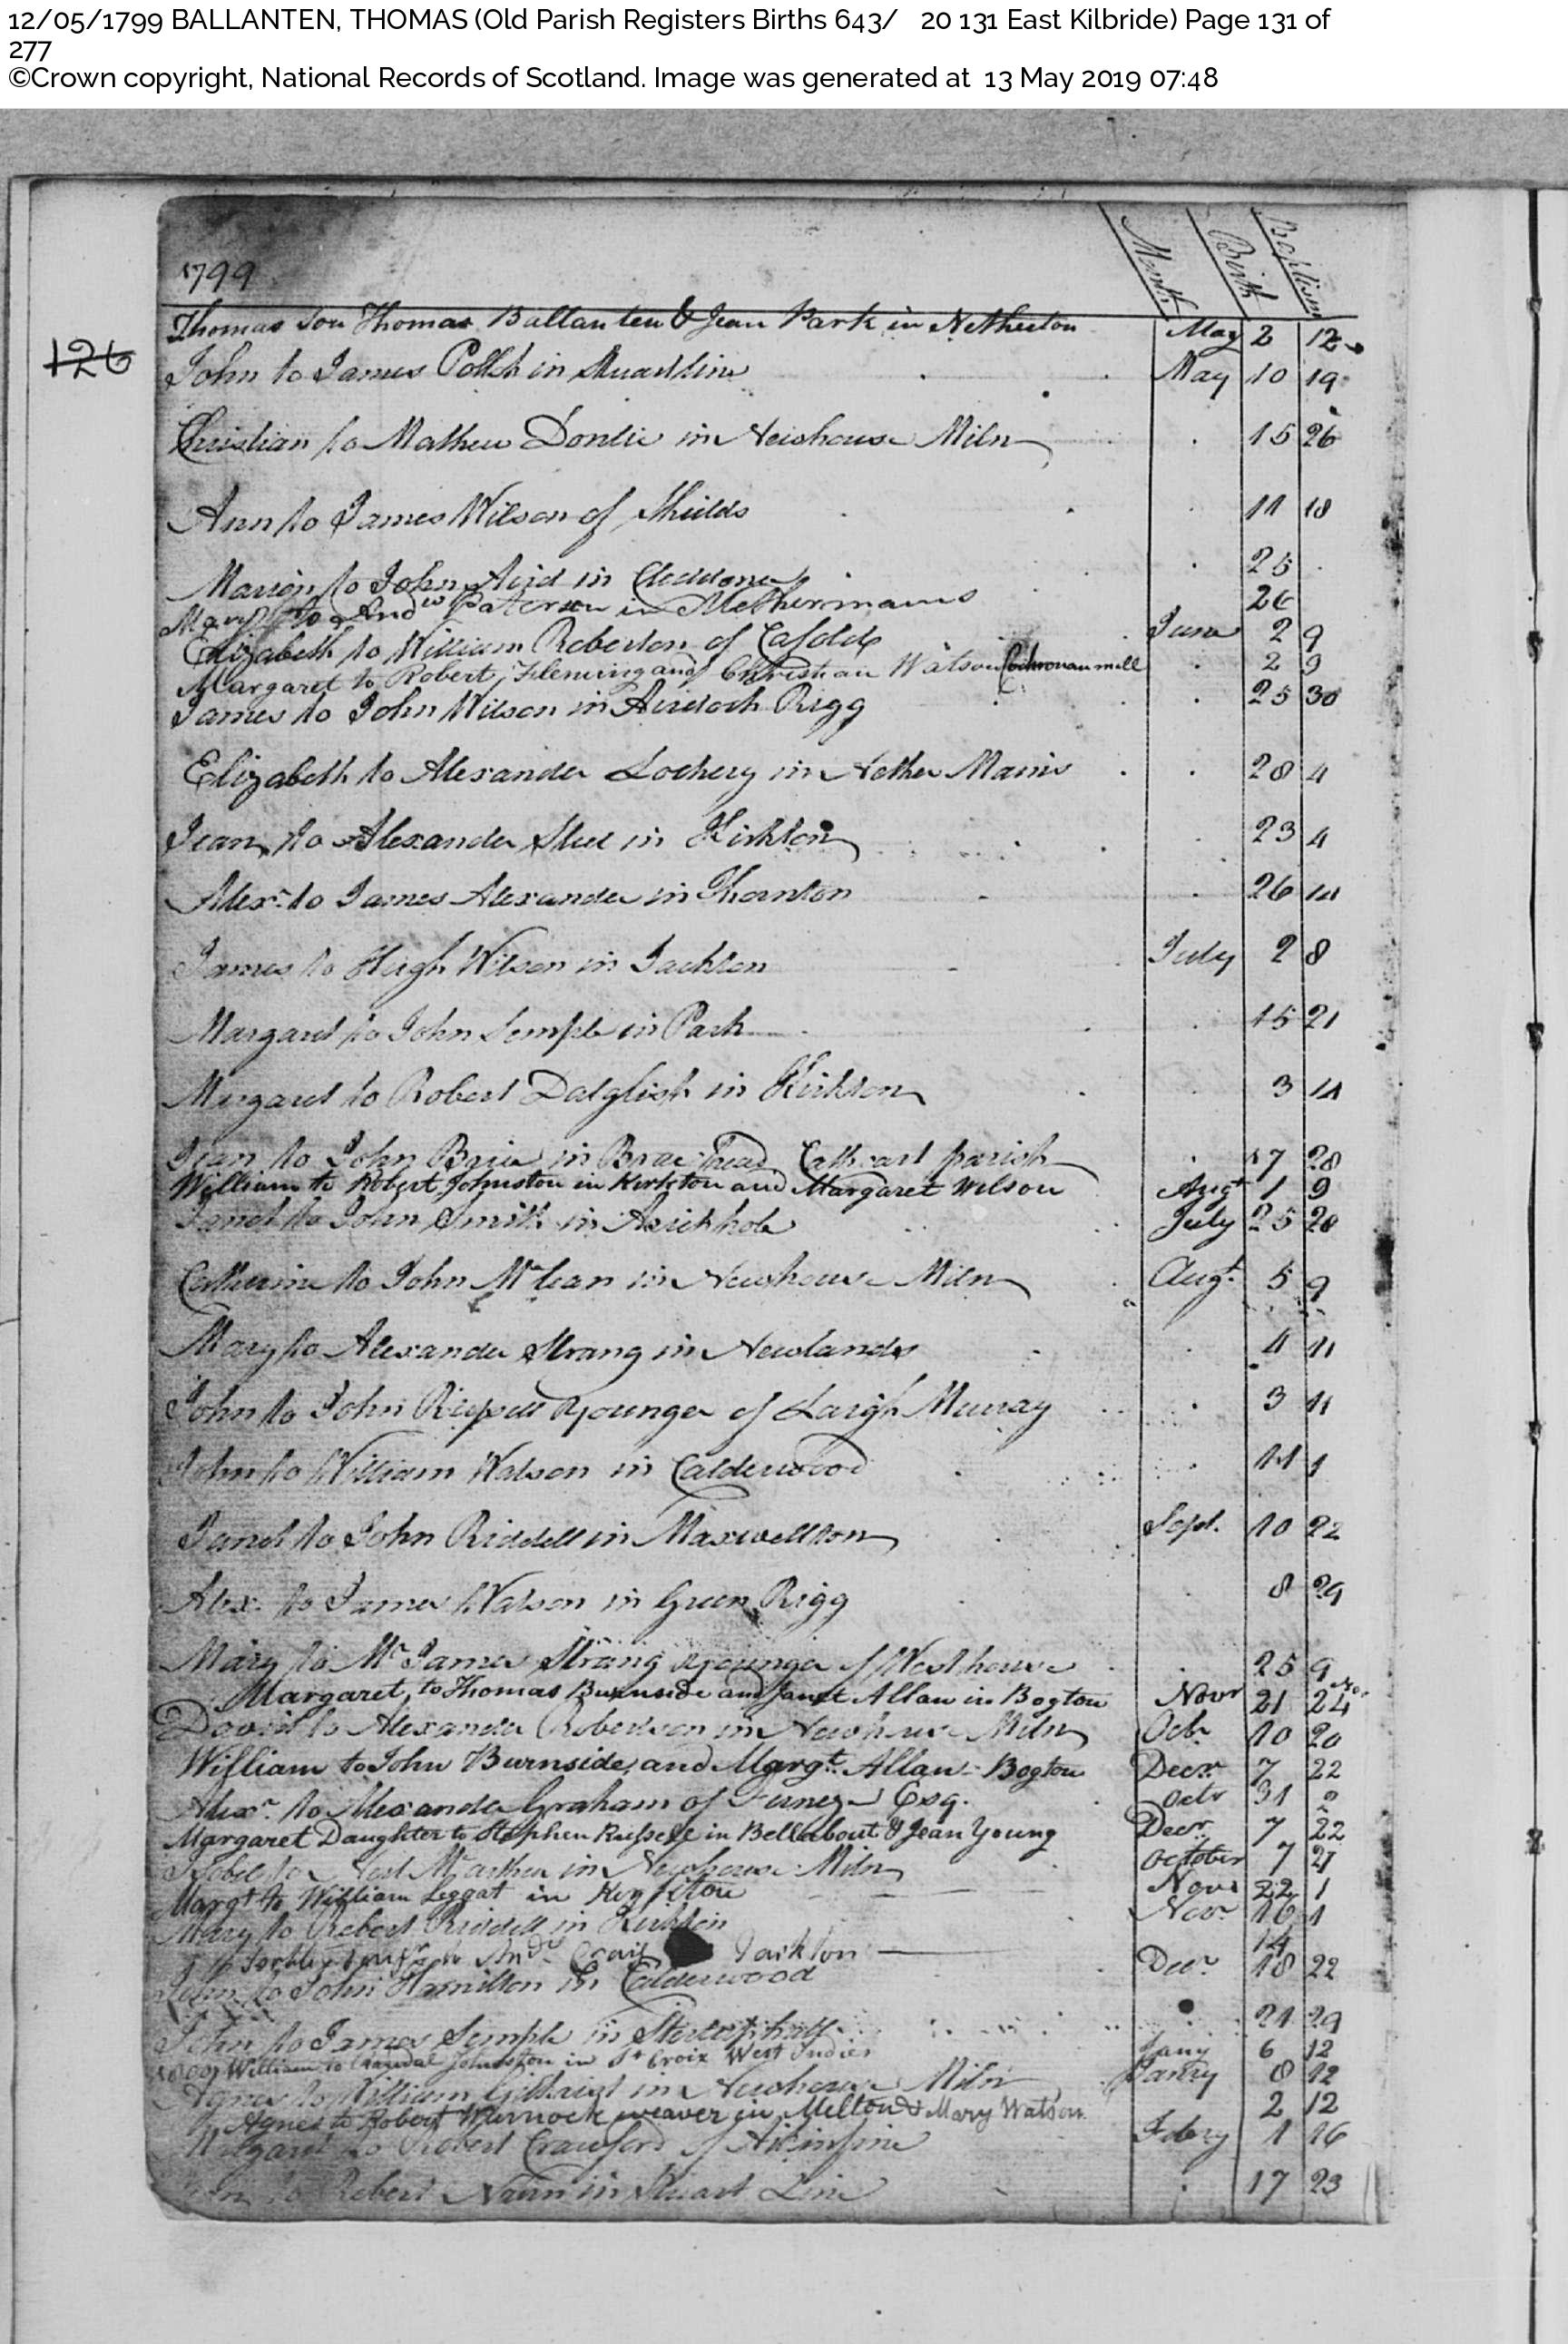 12/05/1799 BALLANTEN, THOMAS (Old Parish Registers Births 643/ 20 131 East Kilbride) Page 131 of
277
©Crown copyright, National Records of Scotland. Image was generated at 13 May 2019 07:48
Month Birth Baptism
1799
126
Thomas son Thomas Ballanten & Jean Park in Netherton May 2 12
John to James Pollok in May 10 19
Christian to Mathew in Newhouse Miln 15 26
Ann to James Wilson of Shields 11 18
Marion to John Aird in 25
Mary to Andw Paterson in Nethermains 26
Elizabeth to William Roberton of June 2 9
Margaret to Robert Fleming and Christian Watson mill 2 9
James to John Wilson in Rigg 25 30
Elizabeth to Alexander in Nether Mains 28 4
Jean to Alexander in Kirkton 23 4
Alexr. to James Alexander in Thornton 26 14
James to Hugh Wilson in Jackton July 2 8
Margaret to John Semple in Park 15 21
Margaret to Robert Dalglish in Kirkton 3 14
Jean to John in Brae head Cathcart parish 17 28
William to Robert Johnston in Kirkton and Margaret Wilson Augt 1 9
Janet to John Smith in July 25 28
Catherine to John McLean in Newhouse Miln Augt. 5 9
Mary to Alexander Strang in Newlands 4 11
John to John Russell Younger of Laigh Murray 3 11
John to William Watson in Calderwood 1
Janet to John Riddell in Maxwellton Sept. 10 22
Alex. to James Watson in Green Rigg 8 29
Mary to Mr James Strang younger of Westhouse 25 9
Margaret to Thomas Burnside and Janet Allan in Bogton Novr 21 24 Nor
David to Alexander Robertson in Newhouse Miln Octr. 10 20
William to John Burnside and Margt. Allan - Bogton Decr. 7 22
Alexr. to Alexander Graham of Esq. Octr 31
Margaret Daughter to Stephen Russell in & Jean Young Decr. 7 22
to Neil in Newhouse Miln October 7 27
Margt to William Leggat in Novr 22 1
Mary to Robert Riddell in Kirkton Novr. 16 1
to Andw Craig Jackton 14
John to John Hamilton in Calderwood Decr. 18 22
John to James Semple in 21 29
1800 William to Johnston in St Croix West Indies Jany 6 12
Agnes to William Gilchrist in Newhouse Miln Janry 8 12
Agnes to Robert Warnock weaver in Melton & Mary Watson 2 12
Margaret to Robert Crawford of Febry 1 16
to Robert in Stuart Line 17 23